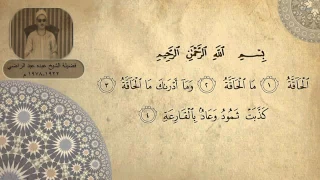 فضيلة الشيخ عبده عبد الراضي
١٩٢٢-١٩٧٨ م
بِسْمِ اللَّهِ الرَّحْمَٰنِ الرَّحِيمِ
الْحَاقَّةُ ١ مَا الْحَاقَّةُ ٢ وَمَا أَدْرَىٰكَ مَا الْحَاقَّةُ ٣
كَذَّبَتْ ثَمُودُ وَعَادٌ بِالْقَارِعَةِ ٤